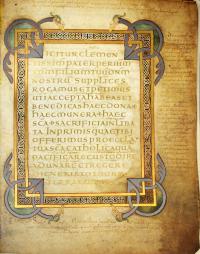 IGITUR CLEMEN
TISSIME PATER PER IHM
XPM FILIUM TUUM DNM
NOSTRU SUPPLICES
ROGAMUS ET PETIMUS
UTI ACCEPTA HABEAS ET
BENEDICAS HAEC DONA
HAEC MUNERA HAEC
SCA SACRIFICIA INLIBA
TA INPRIMIS QUAE TIBI
OFFERIMUS PRO ECCLA
TUA SCA CATHOLICA QUA
PACIFICARE CUSTODIRE
ADUNARE ET REGERE